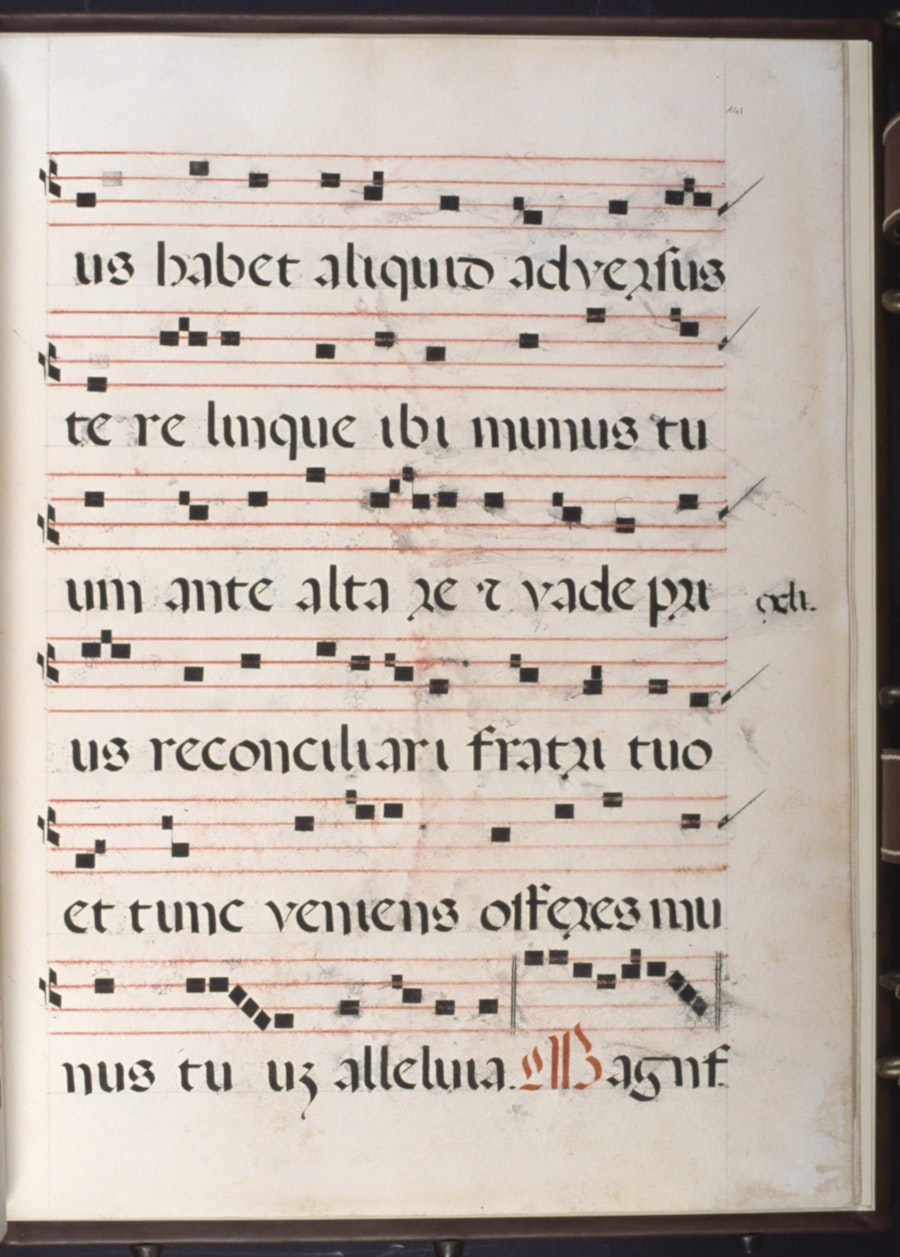 141
us habet aliquid adversus
te re linque ibi munus tu
um ante alta re ⁊ vade pri
us reconciliari fratri tuo
et tunc veniens offeres mu
nus tu uz alleluia. Magnf.